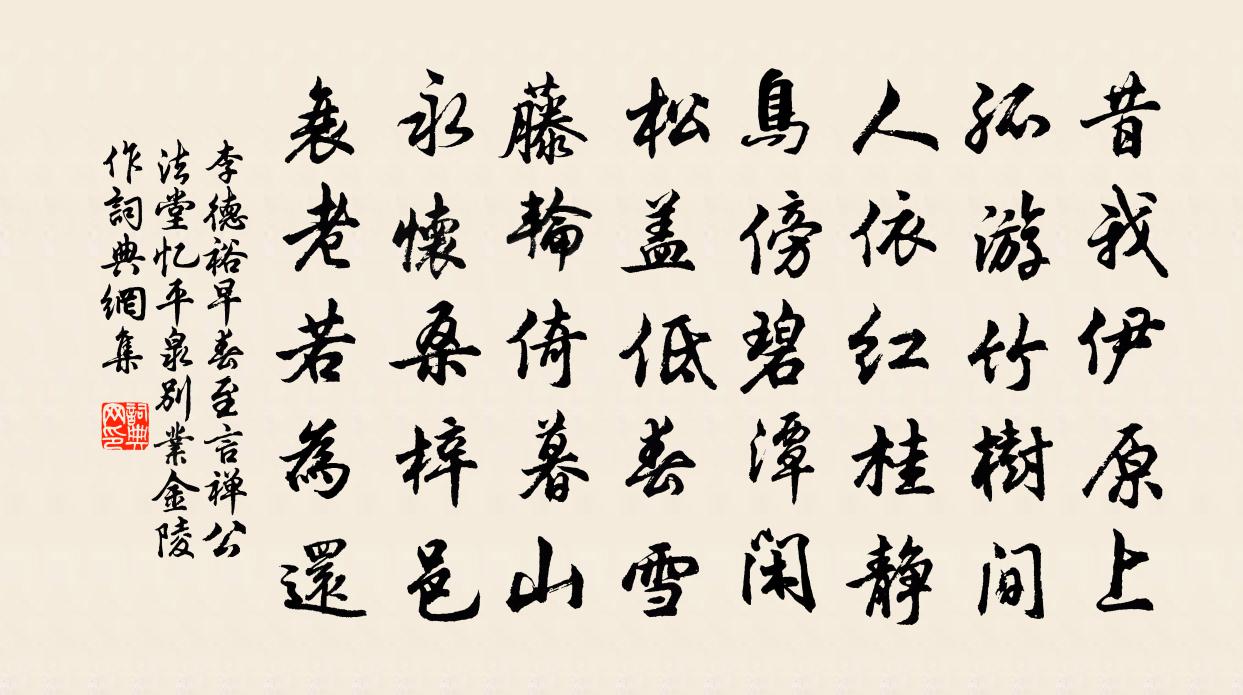 昔我伊原上
孤游竹樹间
人依红桂静
鳥傍碧潭闲
松盖低春雪
藤輪倚暮山
永懷桑梓邑
衰老若為還
李德裕早春至言禅公
法堂忆平泉别業金陵
作詞典網集
詞典
网印